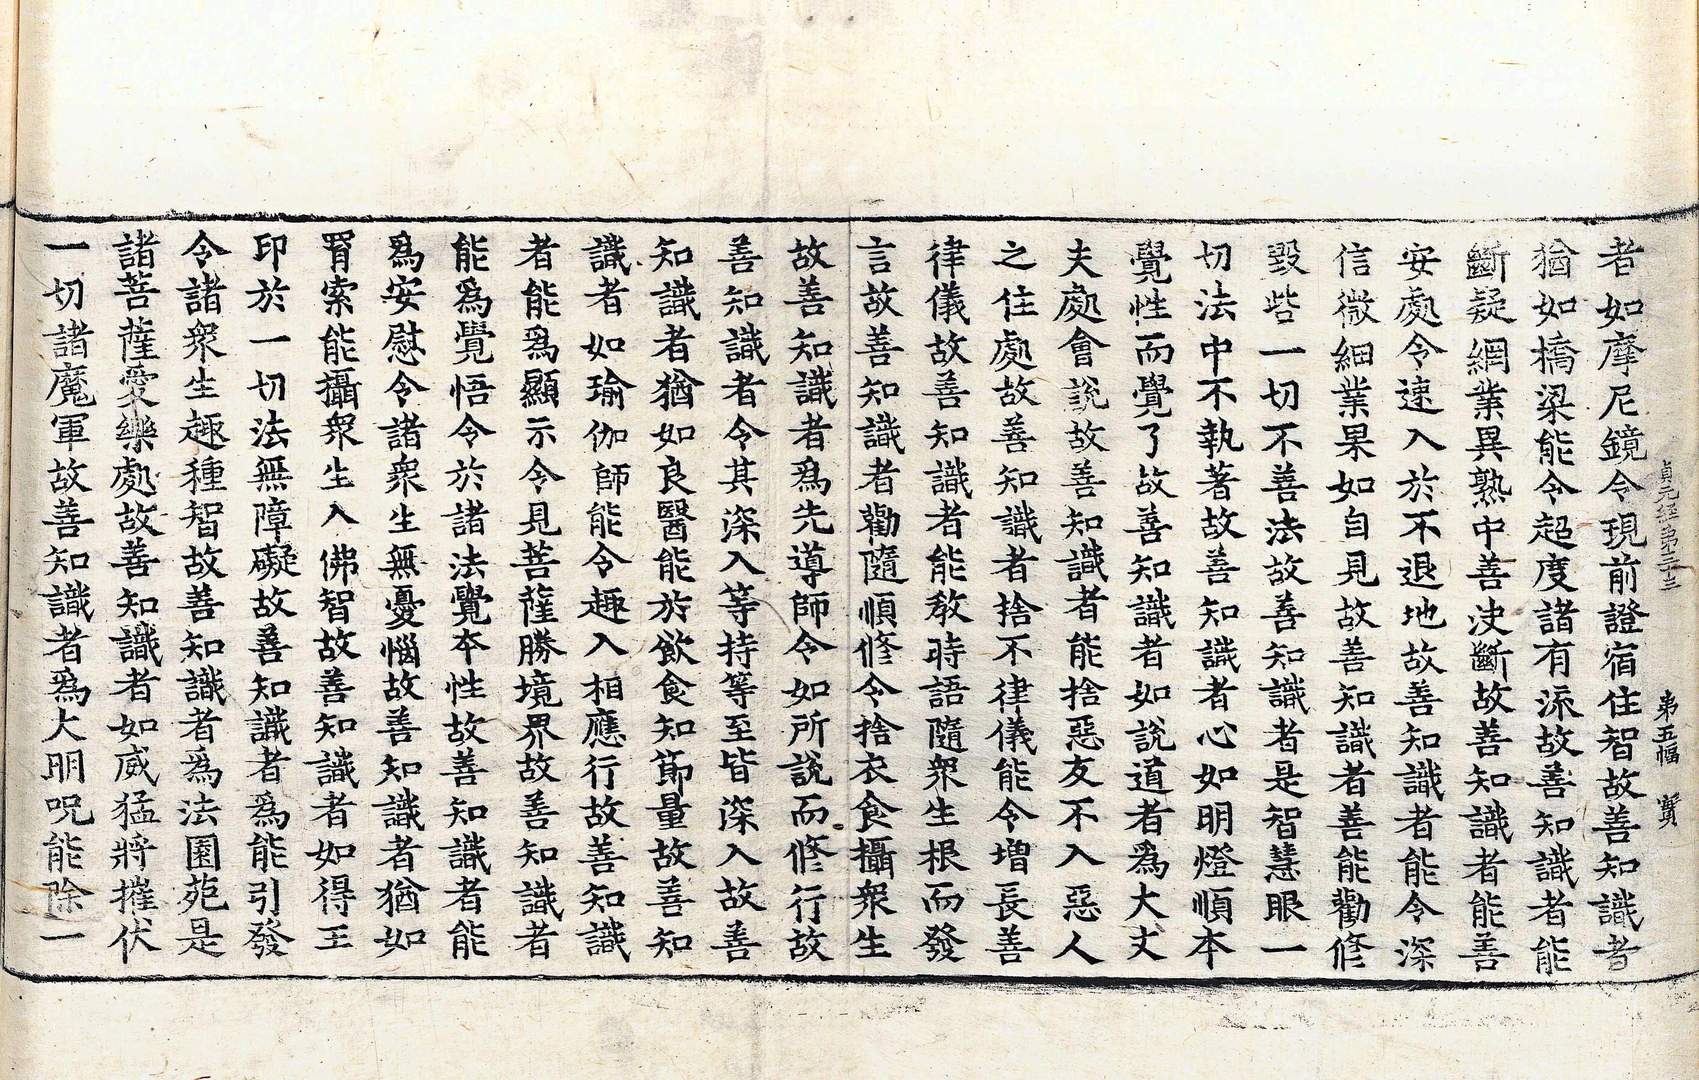 貞元經第三十三 第五幅 寳
者如摩尼鏡令現前證宿住智故善知識者
猶如橋梁能令超度諸有流故善知識者能
斷疑網業異熟中善決斷故善知識者能善
安處令速入於不退地故善知識者能令深
信微細業果如自見故善知識者善能勸修
毀呰一切不善法故善知識者是智慧眼一
切法中不執著故善知識者心如明燈順本
覺性而覺了故善知識者如說道者爲大丈
夫處會說故善知識者能捨惡友不入惡人
之住處故善知識者捨不律儀能令增長善
律儀故善知識者能教時語隨衆生根而發
言故善知識者勸隨順修令捨衣食攝衆生
故善知識者爲先導師令如所說而修行故
善知識者令其深入等持等至皆深入故善
知識者猶如良醫能於飲食知節量故善知
識者如瑜伽師能令趣入相應行故善知識
者能爲顯示令見菩薩勝境界故善知識者
能爲覺悟令於諸法覺本性故善知識者能
爲安慰令諸衆生無憂惱故善知識者猶如
罥索能攝衆生入佛智故善知識者如得王
印於一切法無障礙故善知識者爲能引發
令諸衆生趣種智故善知識者爲法園苑是
諸菩薩愛樂處故善知識者如威猛將摧伏
一切諸魔軍故善知識者爲大明呪能除一